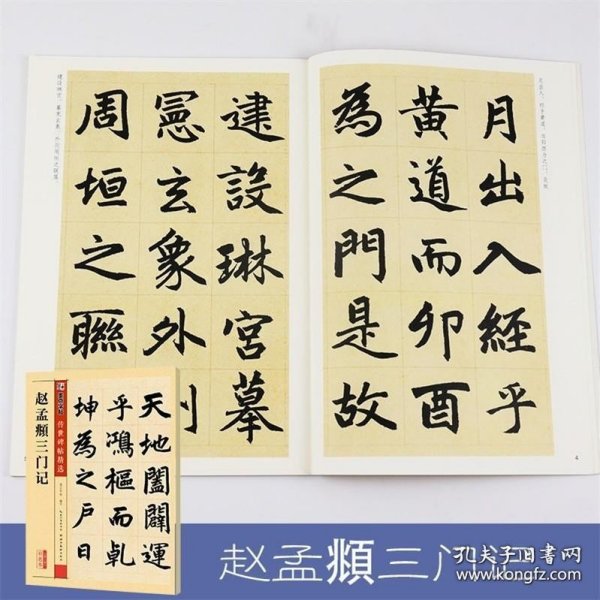 月出入經乎
黄道而卯酉
為之門是故
4
建設琳宮摹
憲玄象外
周垣之聯
传世碑帖精选
赵孟頫三门记
天地闔闢運
乎鴻樞而乹
坤為之戸日
赵孟頫三门
孔夫子旧书网
www.kongfz.com